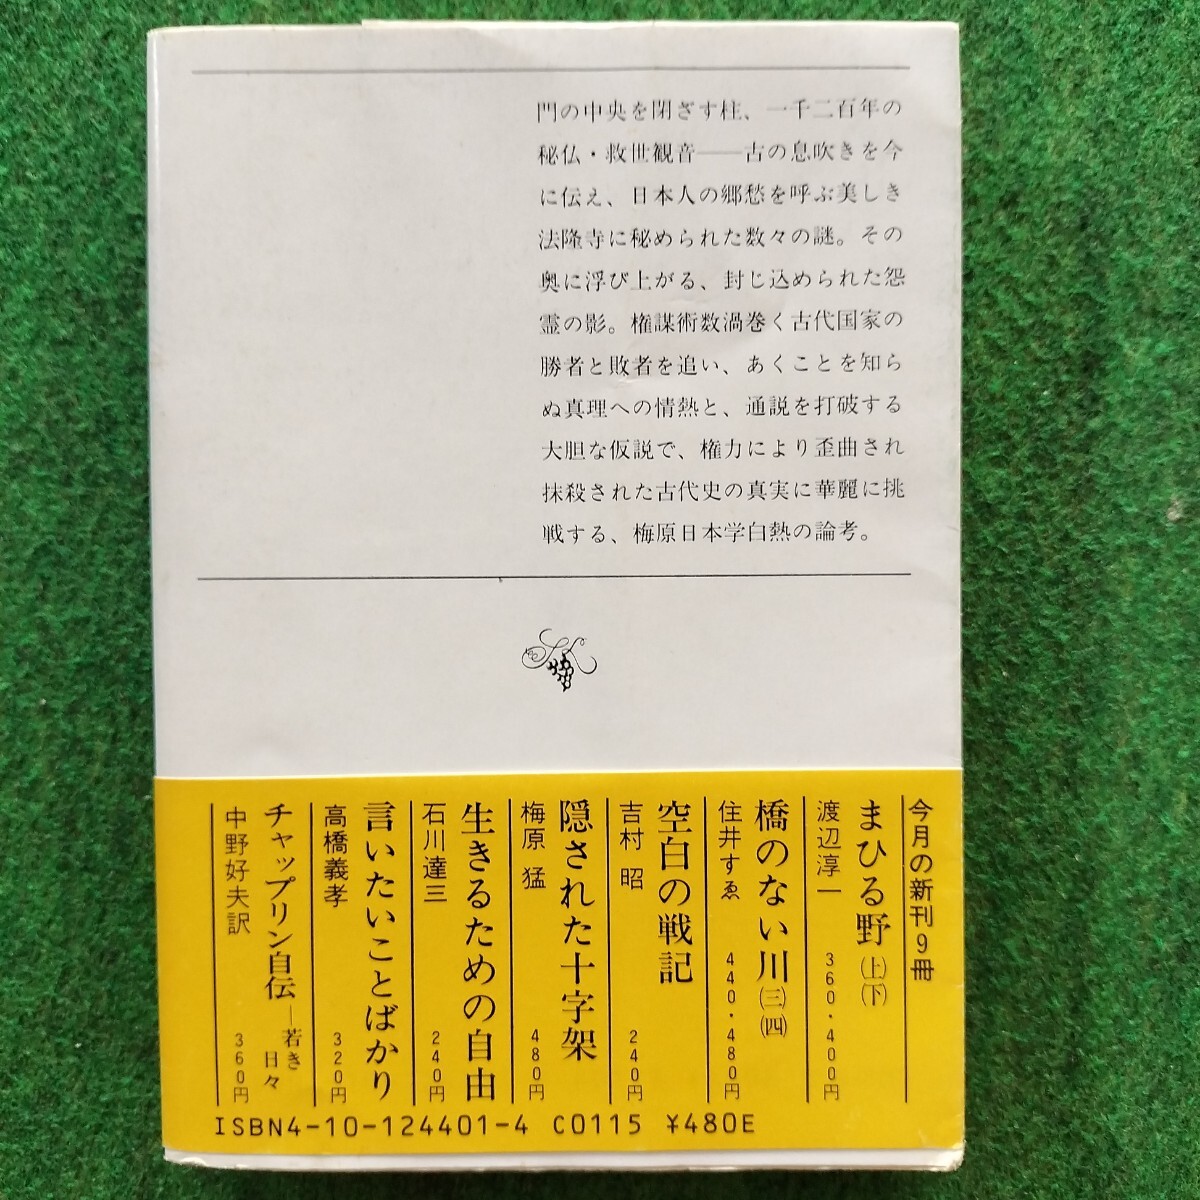 門の中央を閉ざす柱、一千二百年の
秘仏・救世観音――古の息吹きを今
に伝え、日本人の郷愁を呼ぶ美しき
法隆寺に秘められた数々の謎。その
奥に浮び上がる、封じ込められた怨
霊の影。権謀術数渦巻く古代国家の
勝者と敗者を追い、あくことを知ら
ぬ真理への情熱と、通説を打破する
大胆な仮説で、権力により歪曲され
抹殺された古代史の真実に華麗に挑
戦する、梅原日本学白熱の論考。
今月の新刊9冊
まひる野(上)(下)
渡辺淳一 360・400円
橋のない川(三)(四)
住井すゑ 440・480円
空白の戦記
吉村昭 240円
隠された十字架
梅原猛 480円
生きるための自由
石川達三 240円
言いたいことばかり
高橋義孝 320円
チャップリン自伝―若き日々
中野好夫訳 360円
ISBN4-10-124401-4 C0115 ¥480E